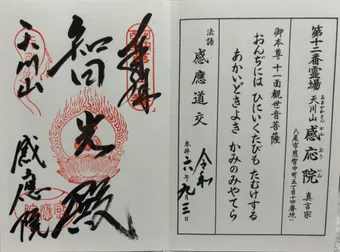 第十二番霊場
天川山 感応院 真言宗
あまかわさん かんおういん
八尾市恩智中町五丁目十四番地一
御本尊 十一面観世音菩薩
おんぢには ひにいくたびも たむけする
あかいどきよき かみのみやてら
法語 感應道交
参拝 令和 六年 九月 三日
奉拝
智光殿
天川山
感應院